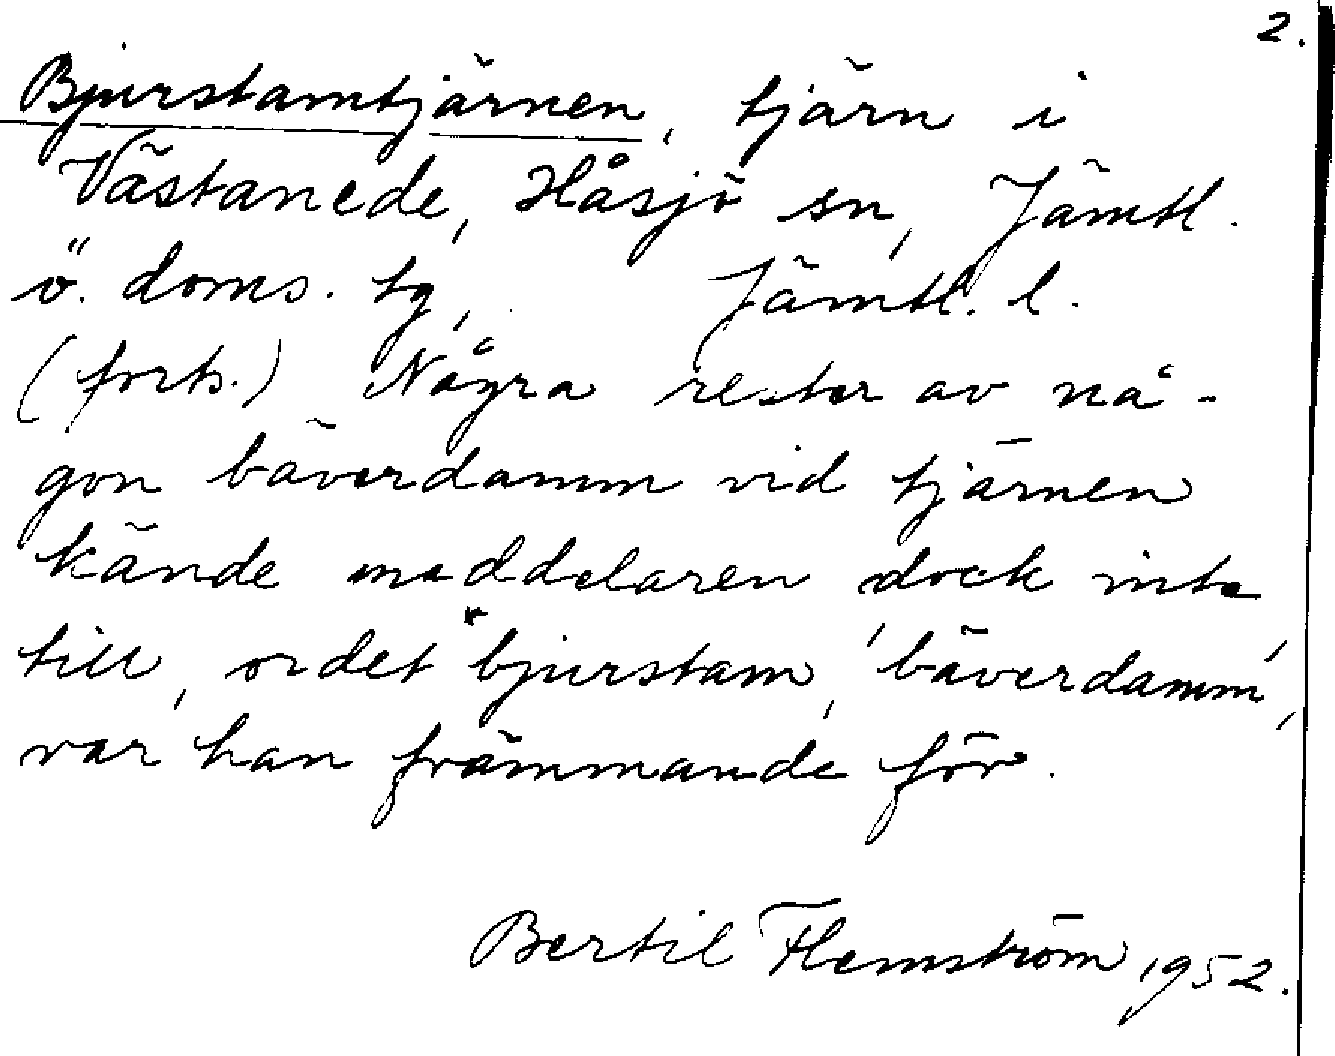 2.
Bjurstamtjärnen, tjärn i
Västanede, Håsjö sn, Jämtl.
ö. doms. tg, Jämtl. l.
(forts.) Några rester av nå-
gon bäverdamm vid tjärnen
kände meddelaren dock inte
till, ordet *bjurstam, 'bäverdamm',
var han främmande för.
Bertil Flemström 1952.